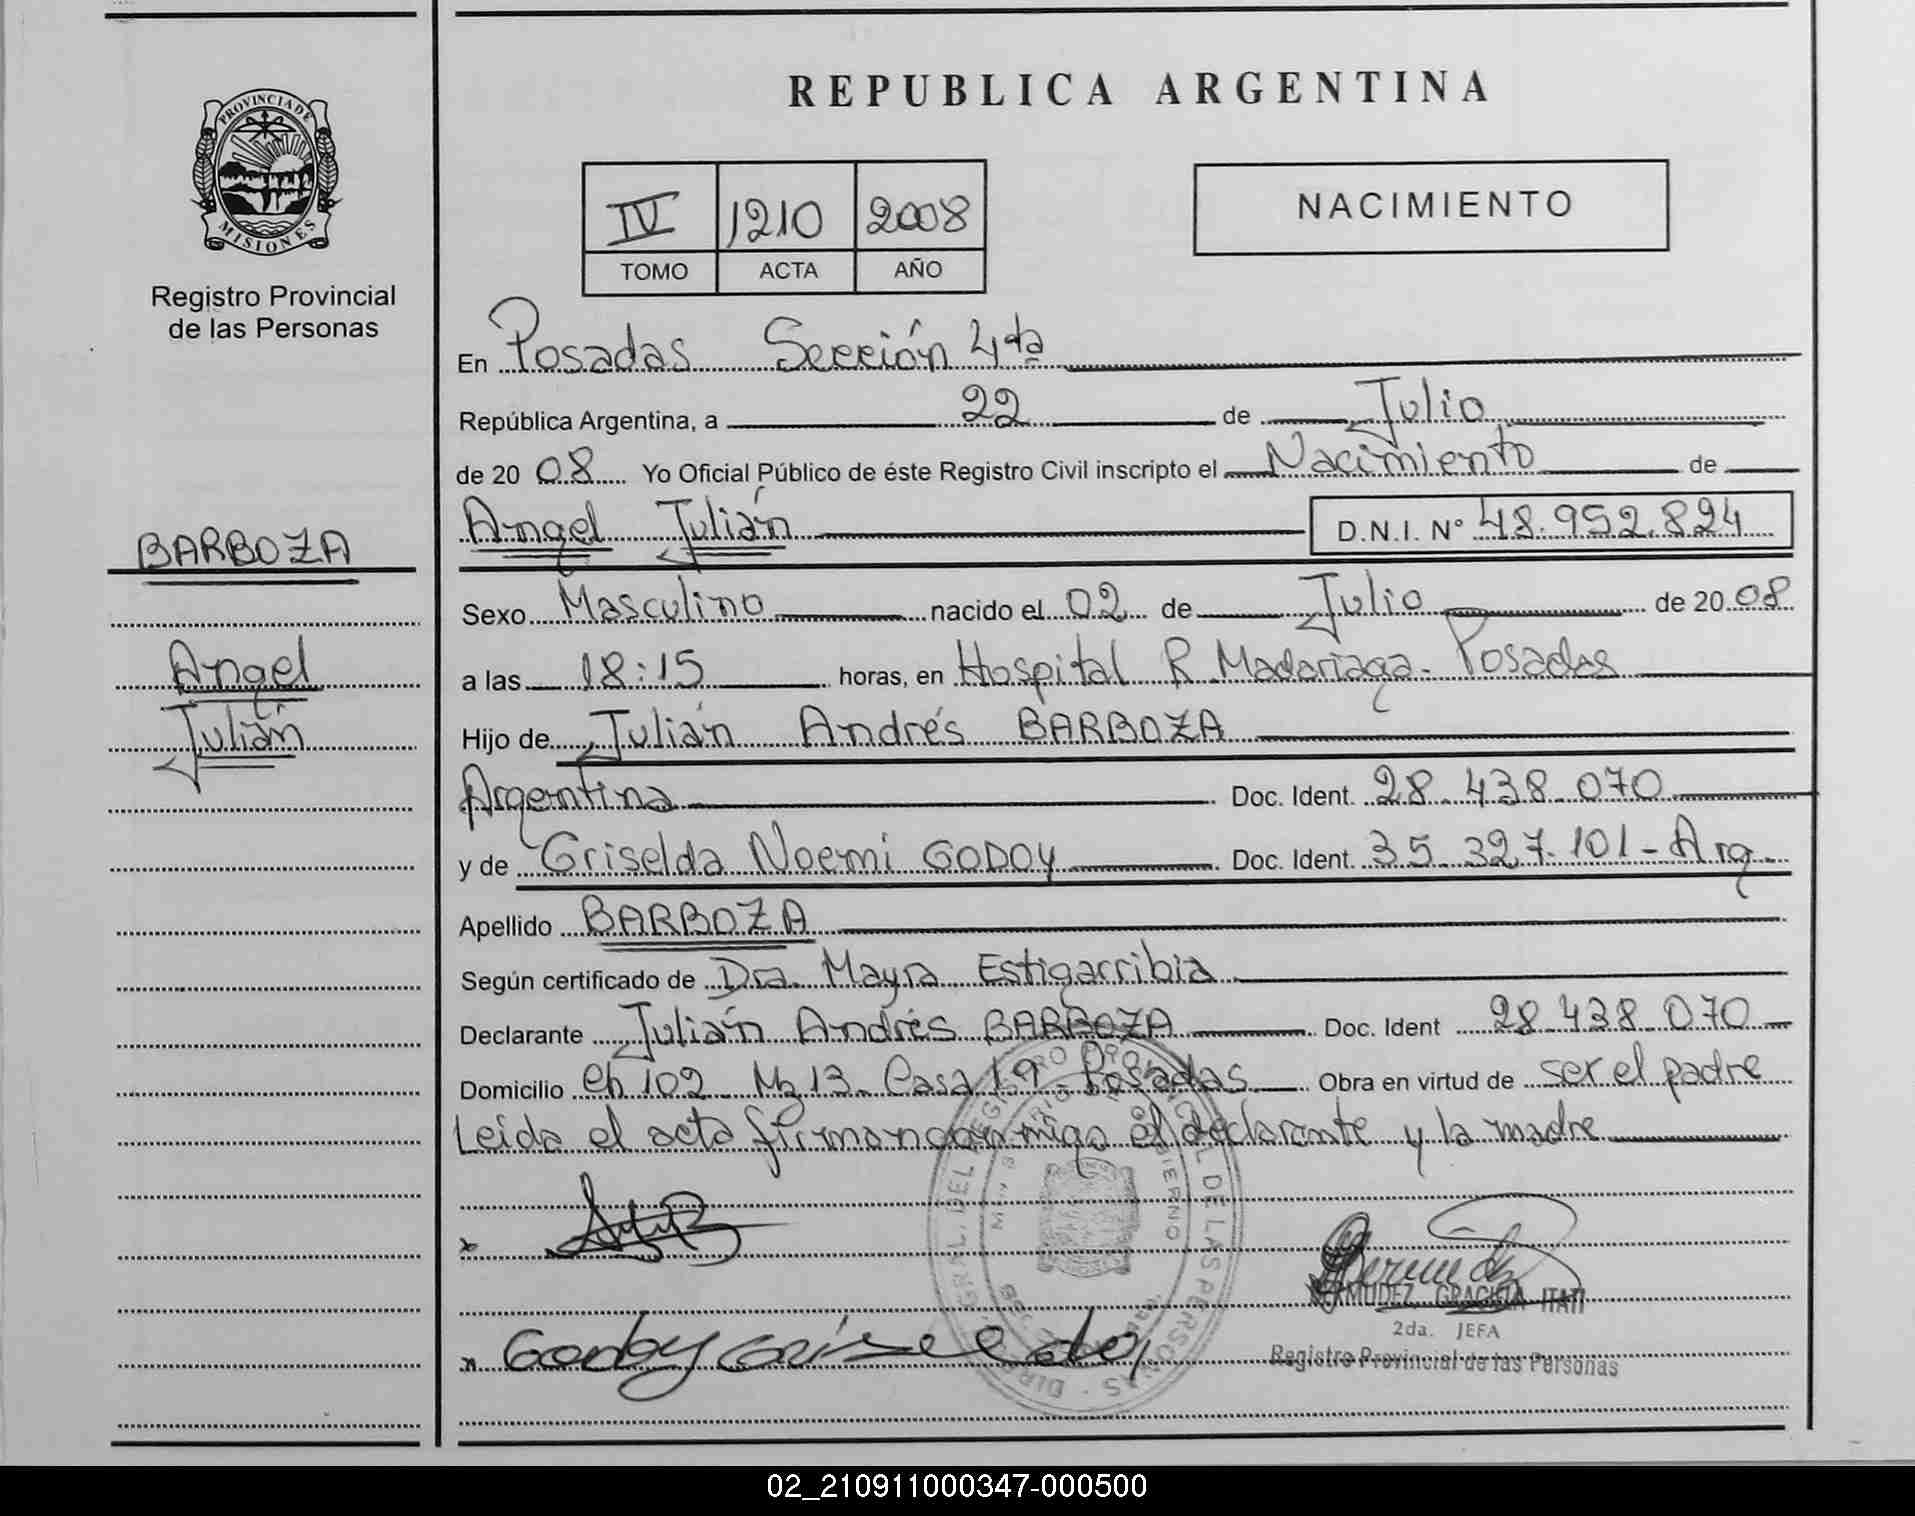 REPUBLICA ARGENTINA
PROVINCIA DE
MISIONES
Registro Provincial
de las Personas
IV 1210 2008
TOMO ACTA AÑO
NACIMIENTO
En Posadas Sección 4ta
República Argentina, a 22 de Julio
de 20 08 Yo Oficial Público de éste Registro Civil inscripto el Nacimiento de
Angel Julián D.N.I. N° 48.952.824
BARBOZA
Angel
Julián
Sexo Masculino nacido el 02 de Julio de 20 08
a las 18:15 horas, en Hospital R. Madariaga - Posadas
Hijo de Julián Andrés BARBOZA
Argentina Doc. Ident. 28.438.070
y de Griselda Noemi GODOY Doc. Ident. 35.327.101 - Arg.
Apellido BARBOZA
Según certificado de Dra. Mayra Estigarribia
Declarante Julián Andrés BARBOZA Doc. Ident 28.438.070
Domicilio Ch 102 Mz 13 - Casa 19 - Posadas Obra en virtud de ser el padre
Leida el acta firman conmigo el declarante y la madre
Godoy Griselda
BERMUDEZ, GRACIELA ITATI
2da. JEFA
Registro Provincial de las Personas
02_210911000347-000500